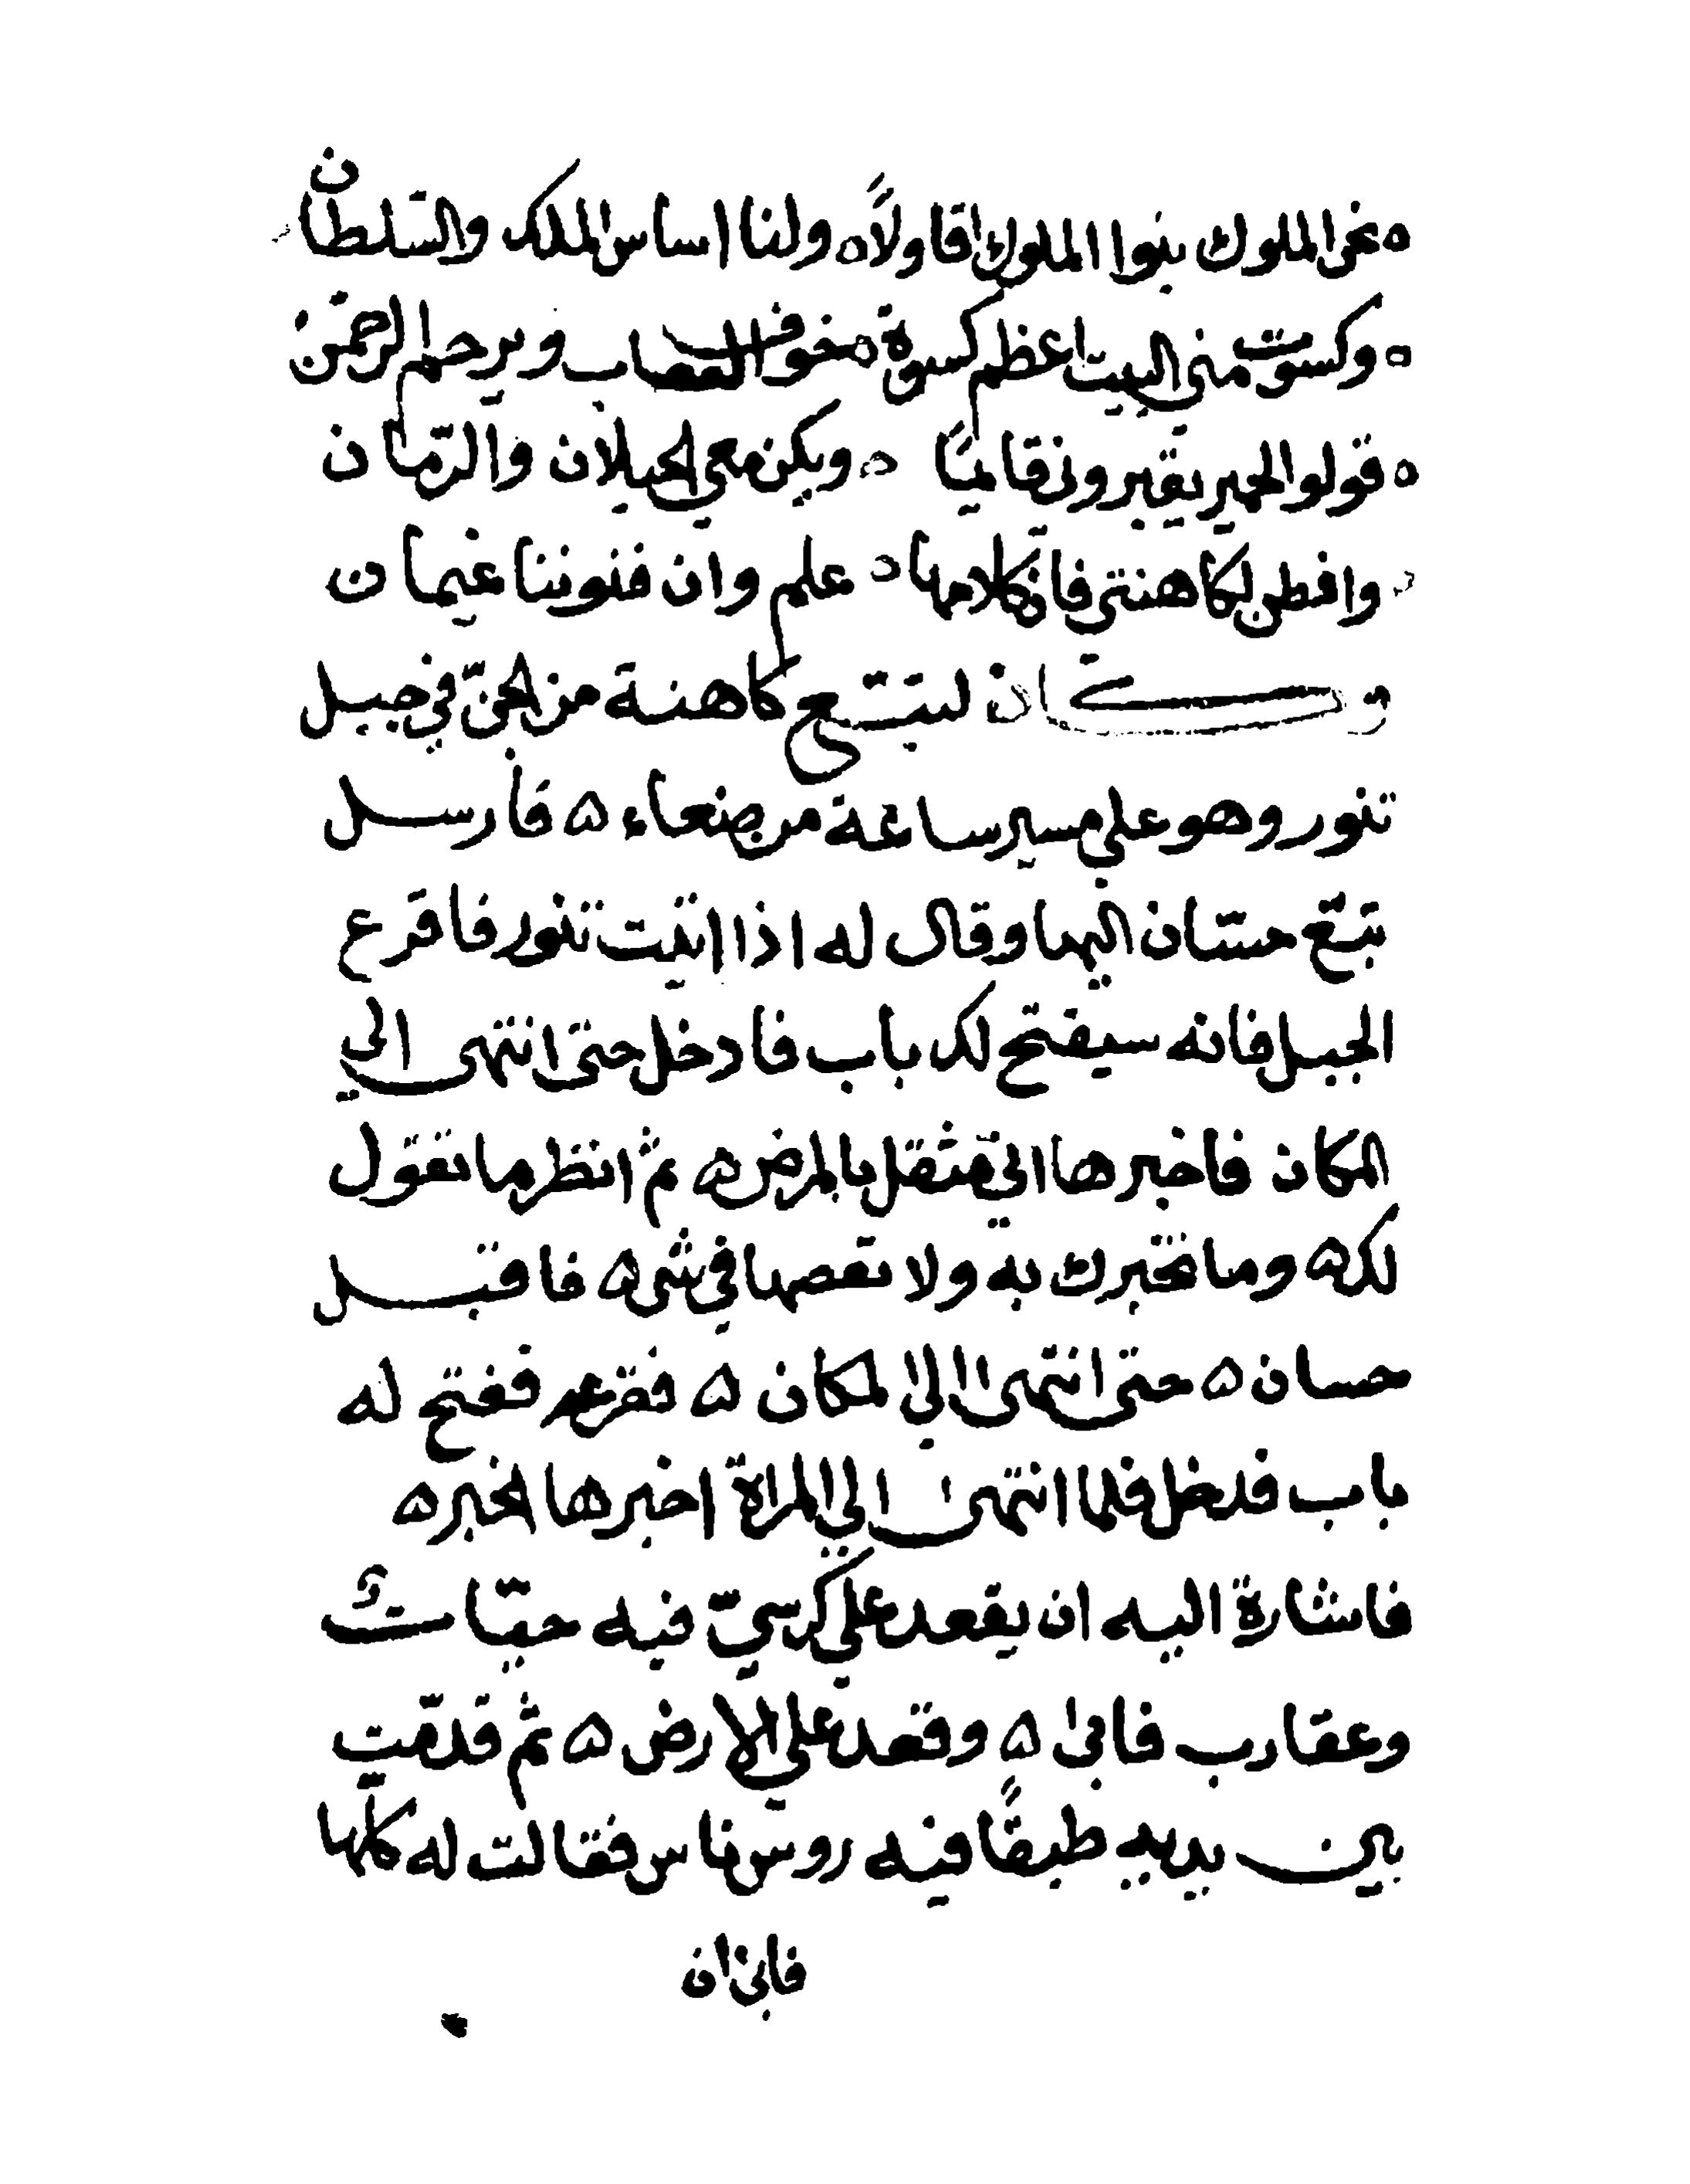 ه نحن الملوك بنوا الملوك اقاولاً ه ولنا اساس الملك والسّلطان
ه وكسوت مني البيت اعظم كسوة ه خوف العصاب ويرحم الرحمن
ه قولوا لحمير يقبروني قائمًا ه ويكن معي الخيلان والرّمان
وافطن لكاهنتي فان كلامها ه علم وان فنوننا غيمان
وكان لتبّع كاهنة من الجنّ في جبيل
تنور وهو علي مسير ساعة من صنعاء ه فأرسل
تبّع حسّان اليها وقال له اذا اتيت تنور فاقرع
الجبيل فانه سيفتح لك باب فادخل حتى انتهى الي
المكان فاخبرها اني مثقل بالمرض ه ثم انظر ما تقول
لك ه وما تخبرك به ولا تعصها في شى ه فاقبل
حسان ه حتى انتهى الي المكان ه فقرعه ففتح له
باب فدخل فلما انتهى الي المراة اخبرها الخبر ه
فاشارة اليه ان يقعد علي كرسيّ فيه حيّات
وعقارب فابى ه وقعد علي الارض ه ثم قدمت
بين يديه طبقًا فيه روس ناس فقالت له كلها
فابى ان